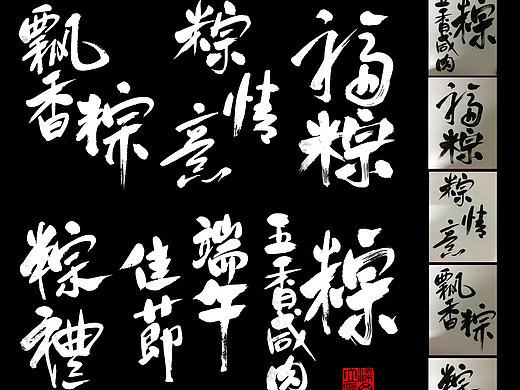 飄香粽
粽情意
福粽
粽禮
端午
佳節
五香咸肉
粽
五香咸肉
粽
福粽
粽情意
飄香粽
粽